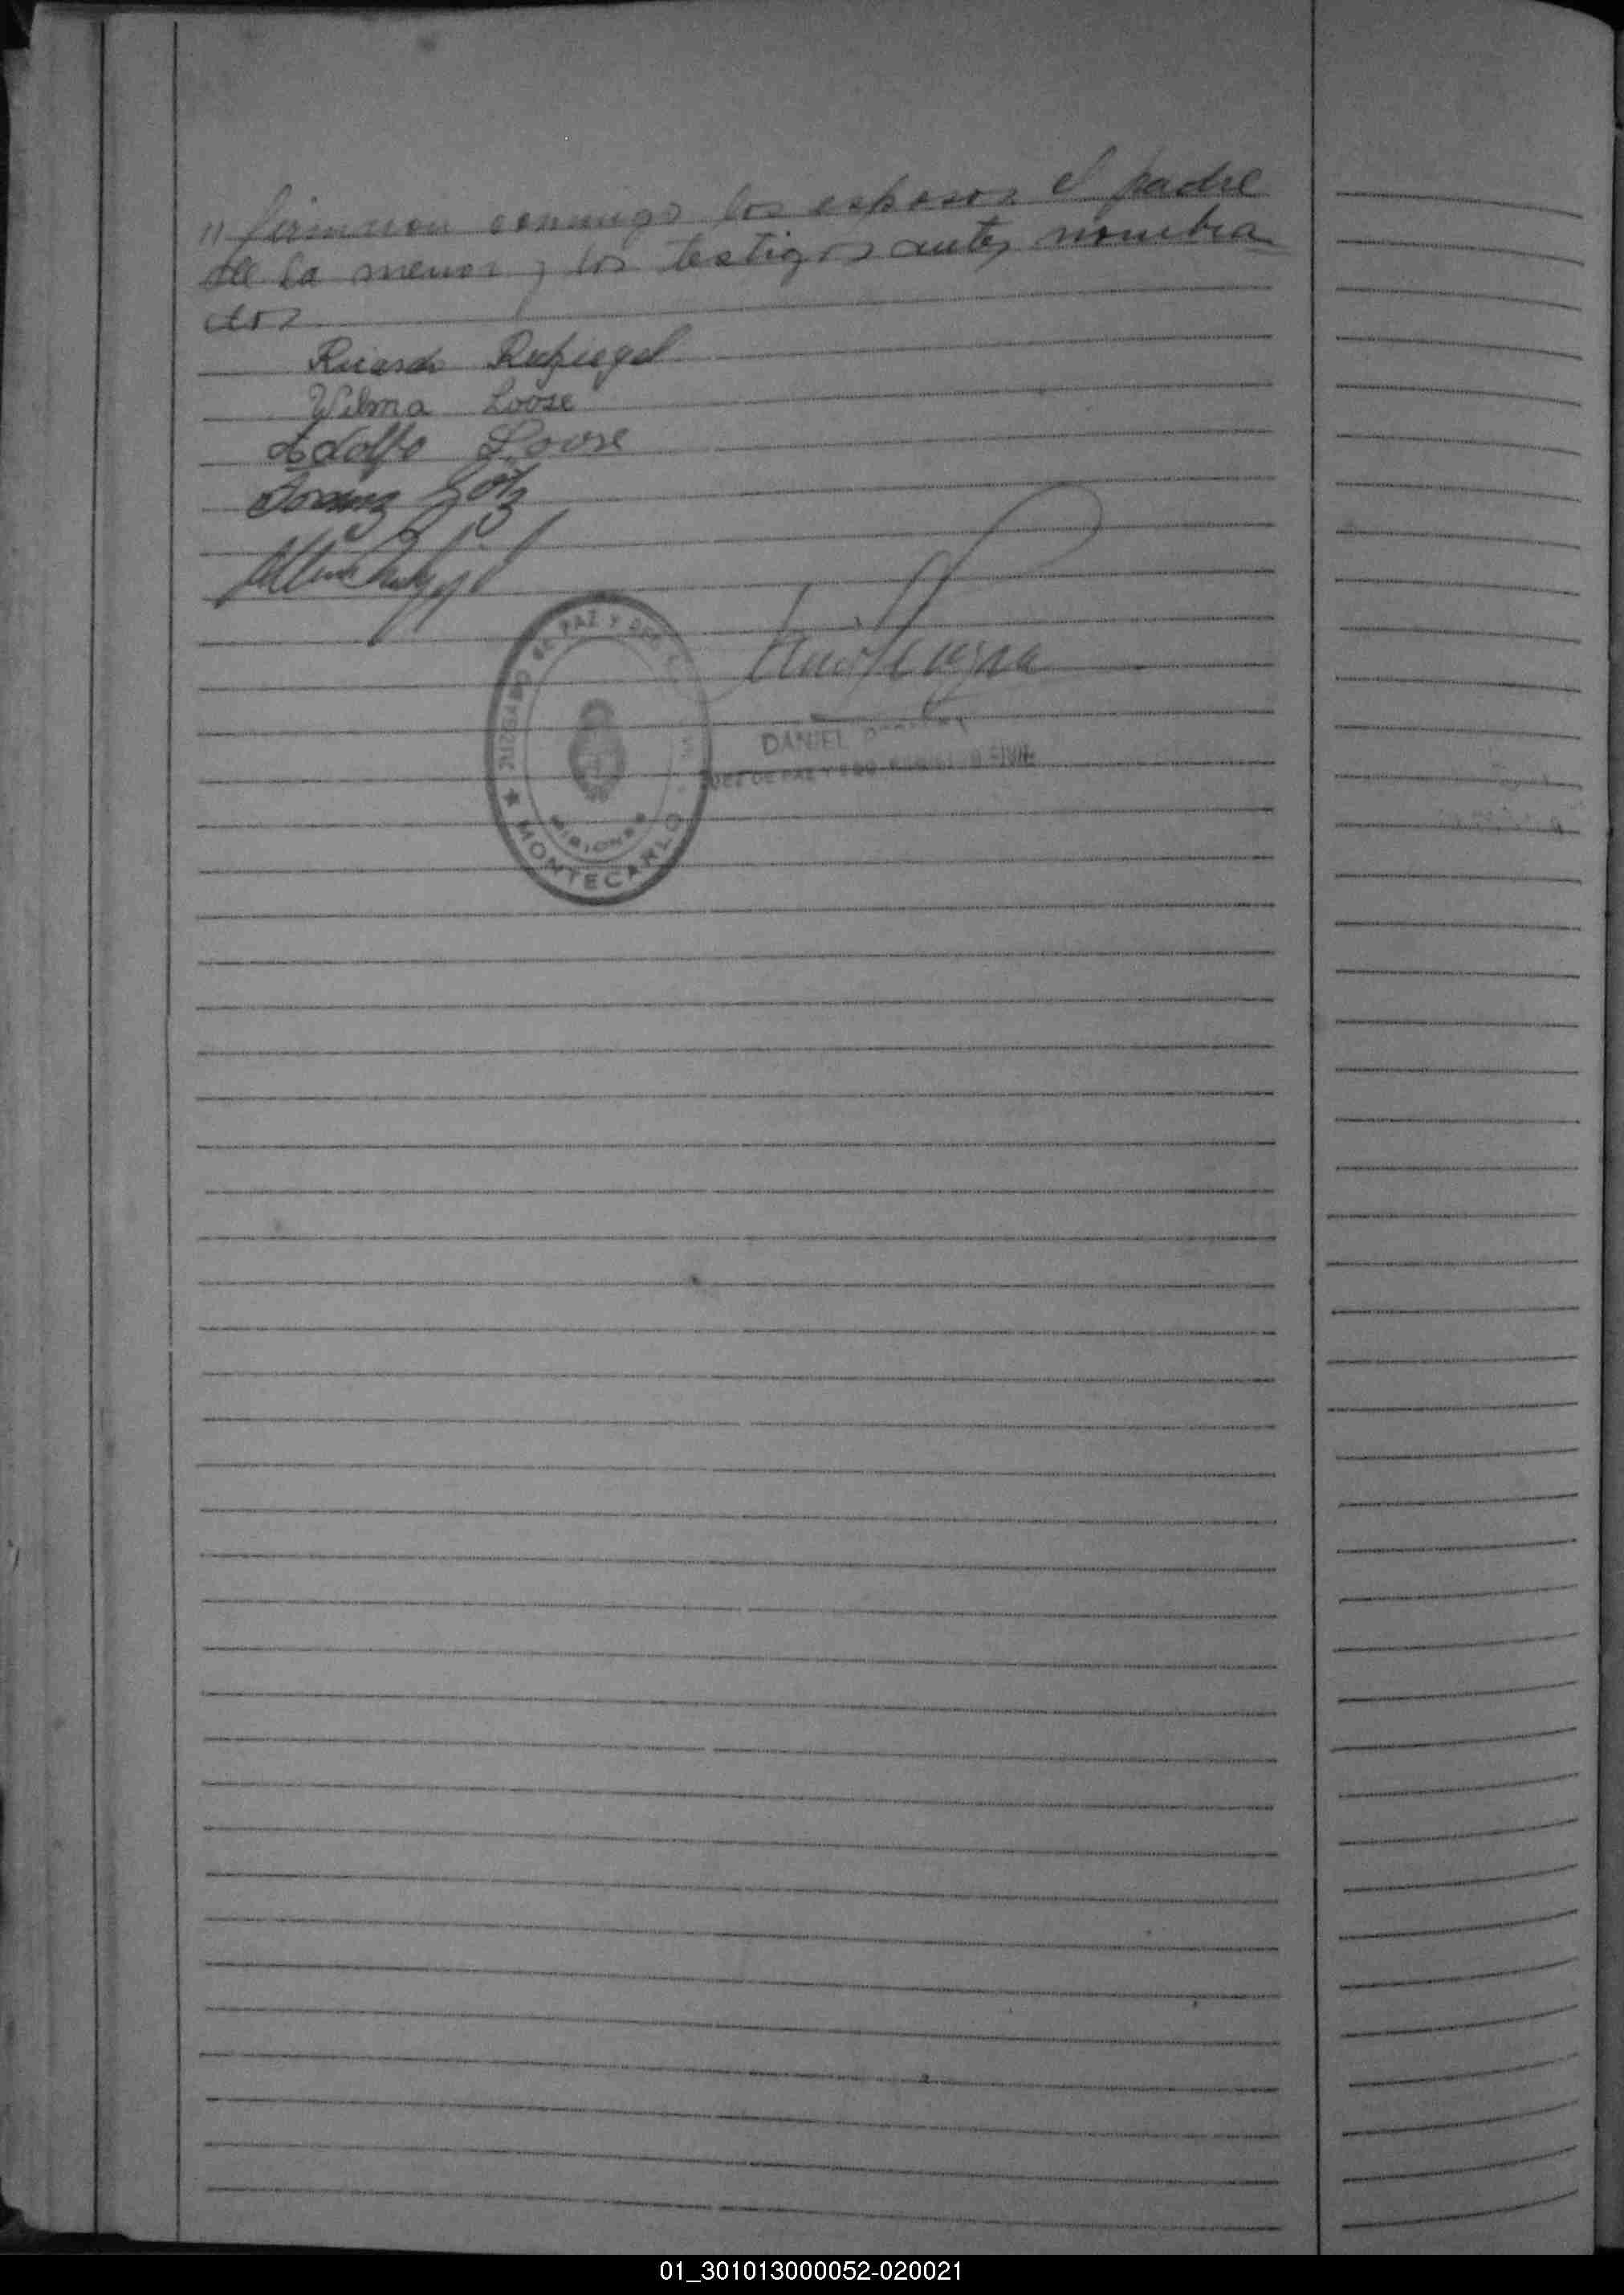 " firmaron conmigo los esposos el padre
de la menor y los testigos antes nombra
dos
Ricardo
Wilma Loose
Adolfo Loose
Franz Götz
JUZGADO DE PAZ Y DEL
MISIONES
★ MONTECARLO
DANIEL
JUEZ DE PAZ Y ENC. REGISTRO CIVIL
01_301013000052-020021